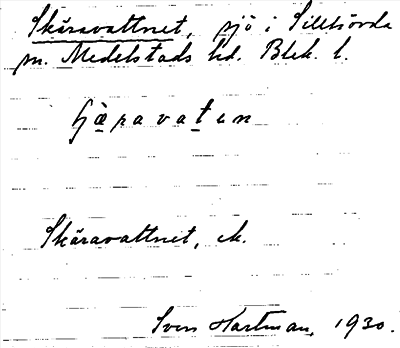 Skäravattnet, sjö i Sillhövda
sn. Medelstads hd. Blek. l.
Skäravattnet, ek.
Sven Hartman, 1930.